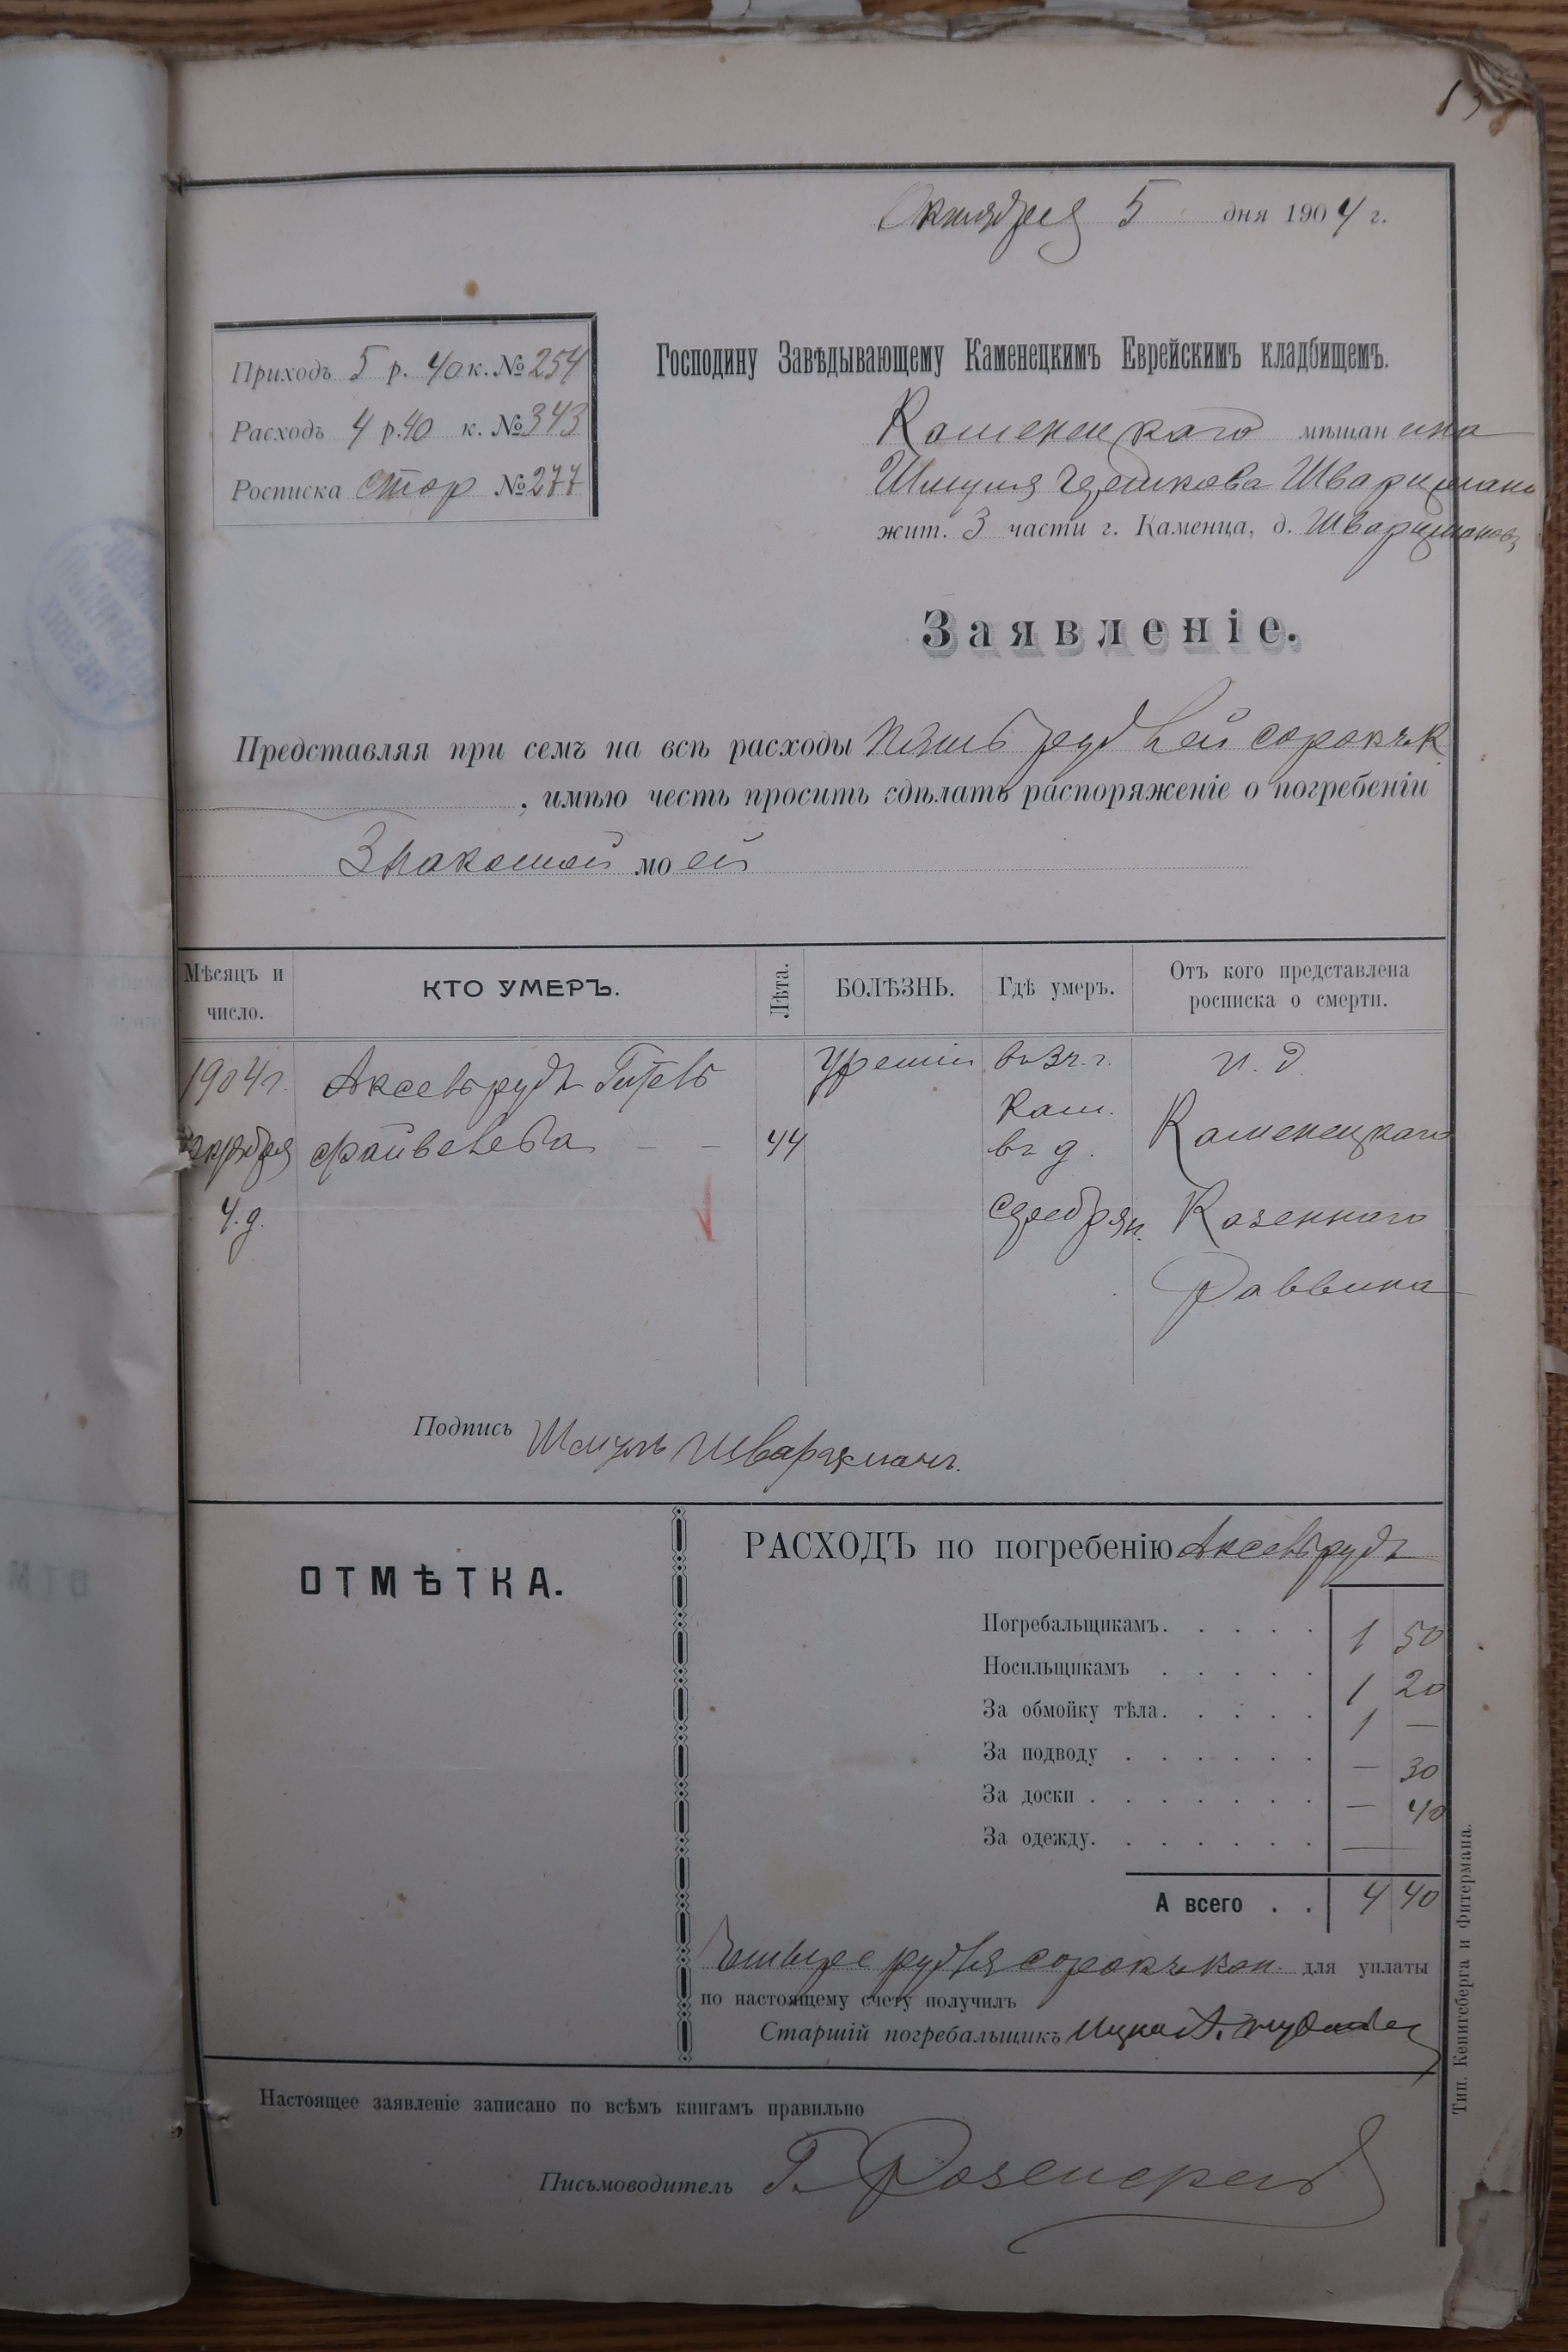 Октября 5 дня 1904 г.
Приходъ 5 р. 40 к. № 254
Расходъ 4 р. 40 к. № 343
Росписка стор № 277
Господину Завѣдывающему Каменецкимъ Еврейскимъ кладбищемъ.
Каменецкаго мѣщанина
Шмуля Шварцмана
жит. 3 части г. Каменца, д. Шварцмановъ
Заявленіе.
Представляя при семъ на всѣ расходы пять рублей сорокъ к
, имѣю честь просить сдѣлать распоряженіе о погребеніи
Знакомой моей
Мѣсяцъ и число.
КТО УМЕРЪ.
Лѣта.
БОЛѢЗНЬ.
Гдѣ умеръ.
Отъ кого представлена росписка о смерти.
1904 г. Аксельрудъ Гитель уремія въ 3 ч. г. И. д.
Кам.
октября Файвелева – – 44 въ д. Каменецкаго
4 д. Казеннаго
Раввина
Подпись Шмуль Шварцманъ.
ОТМѢТКА.
РАСХОДЪ по погребенію Аксельрудъ
Погребальщикамъ. . . . . 1 50
Носильщикамъ . . . . . 1 20
За обмойку тѣла. . . . . 1 —
За подводу . . . . . . — 30
За доски . . . . . . . — 40
За одежду. . . . . . . —
А всего . . 4 40
Четыре рубля сорокъ коп. для уплаты
по настоящему счету получилъ
Старшій погребальщикъ
Настоящее заявленіе записано по всѣмъ книгамъ правильно
Письмоводитель Г.
Тип. Кенигсберга и Фитермана.